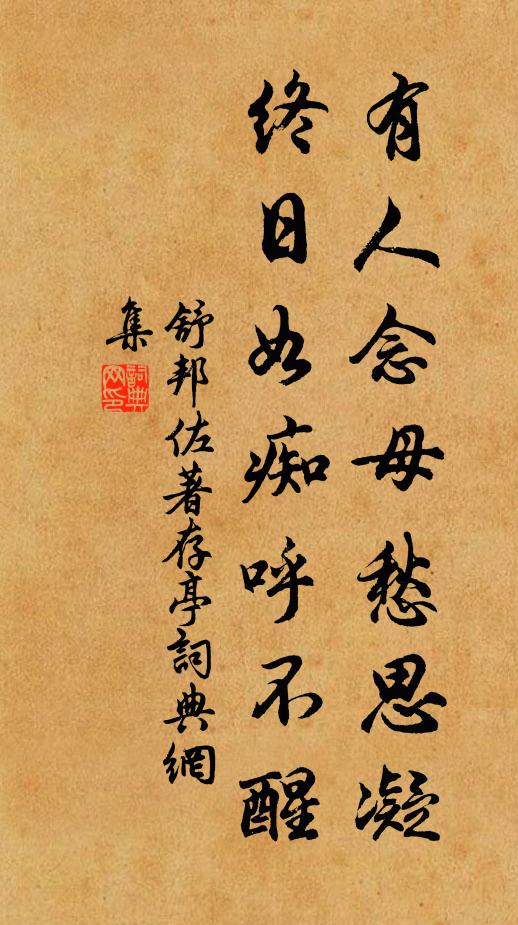 有人念母愁思凝
終日如痴呼不醒
舒邦佐著存亭詞典網
集
詞典網印